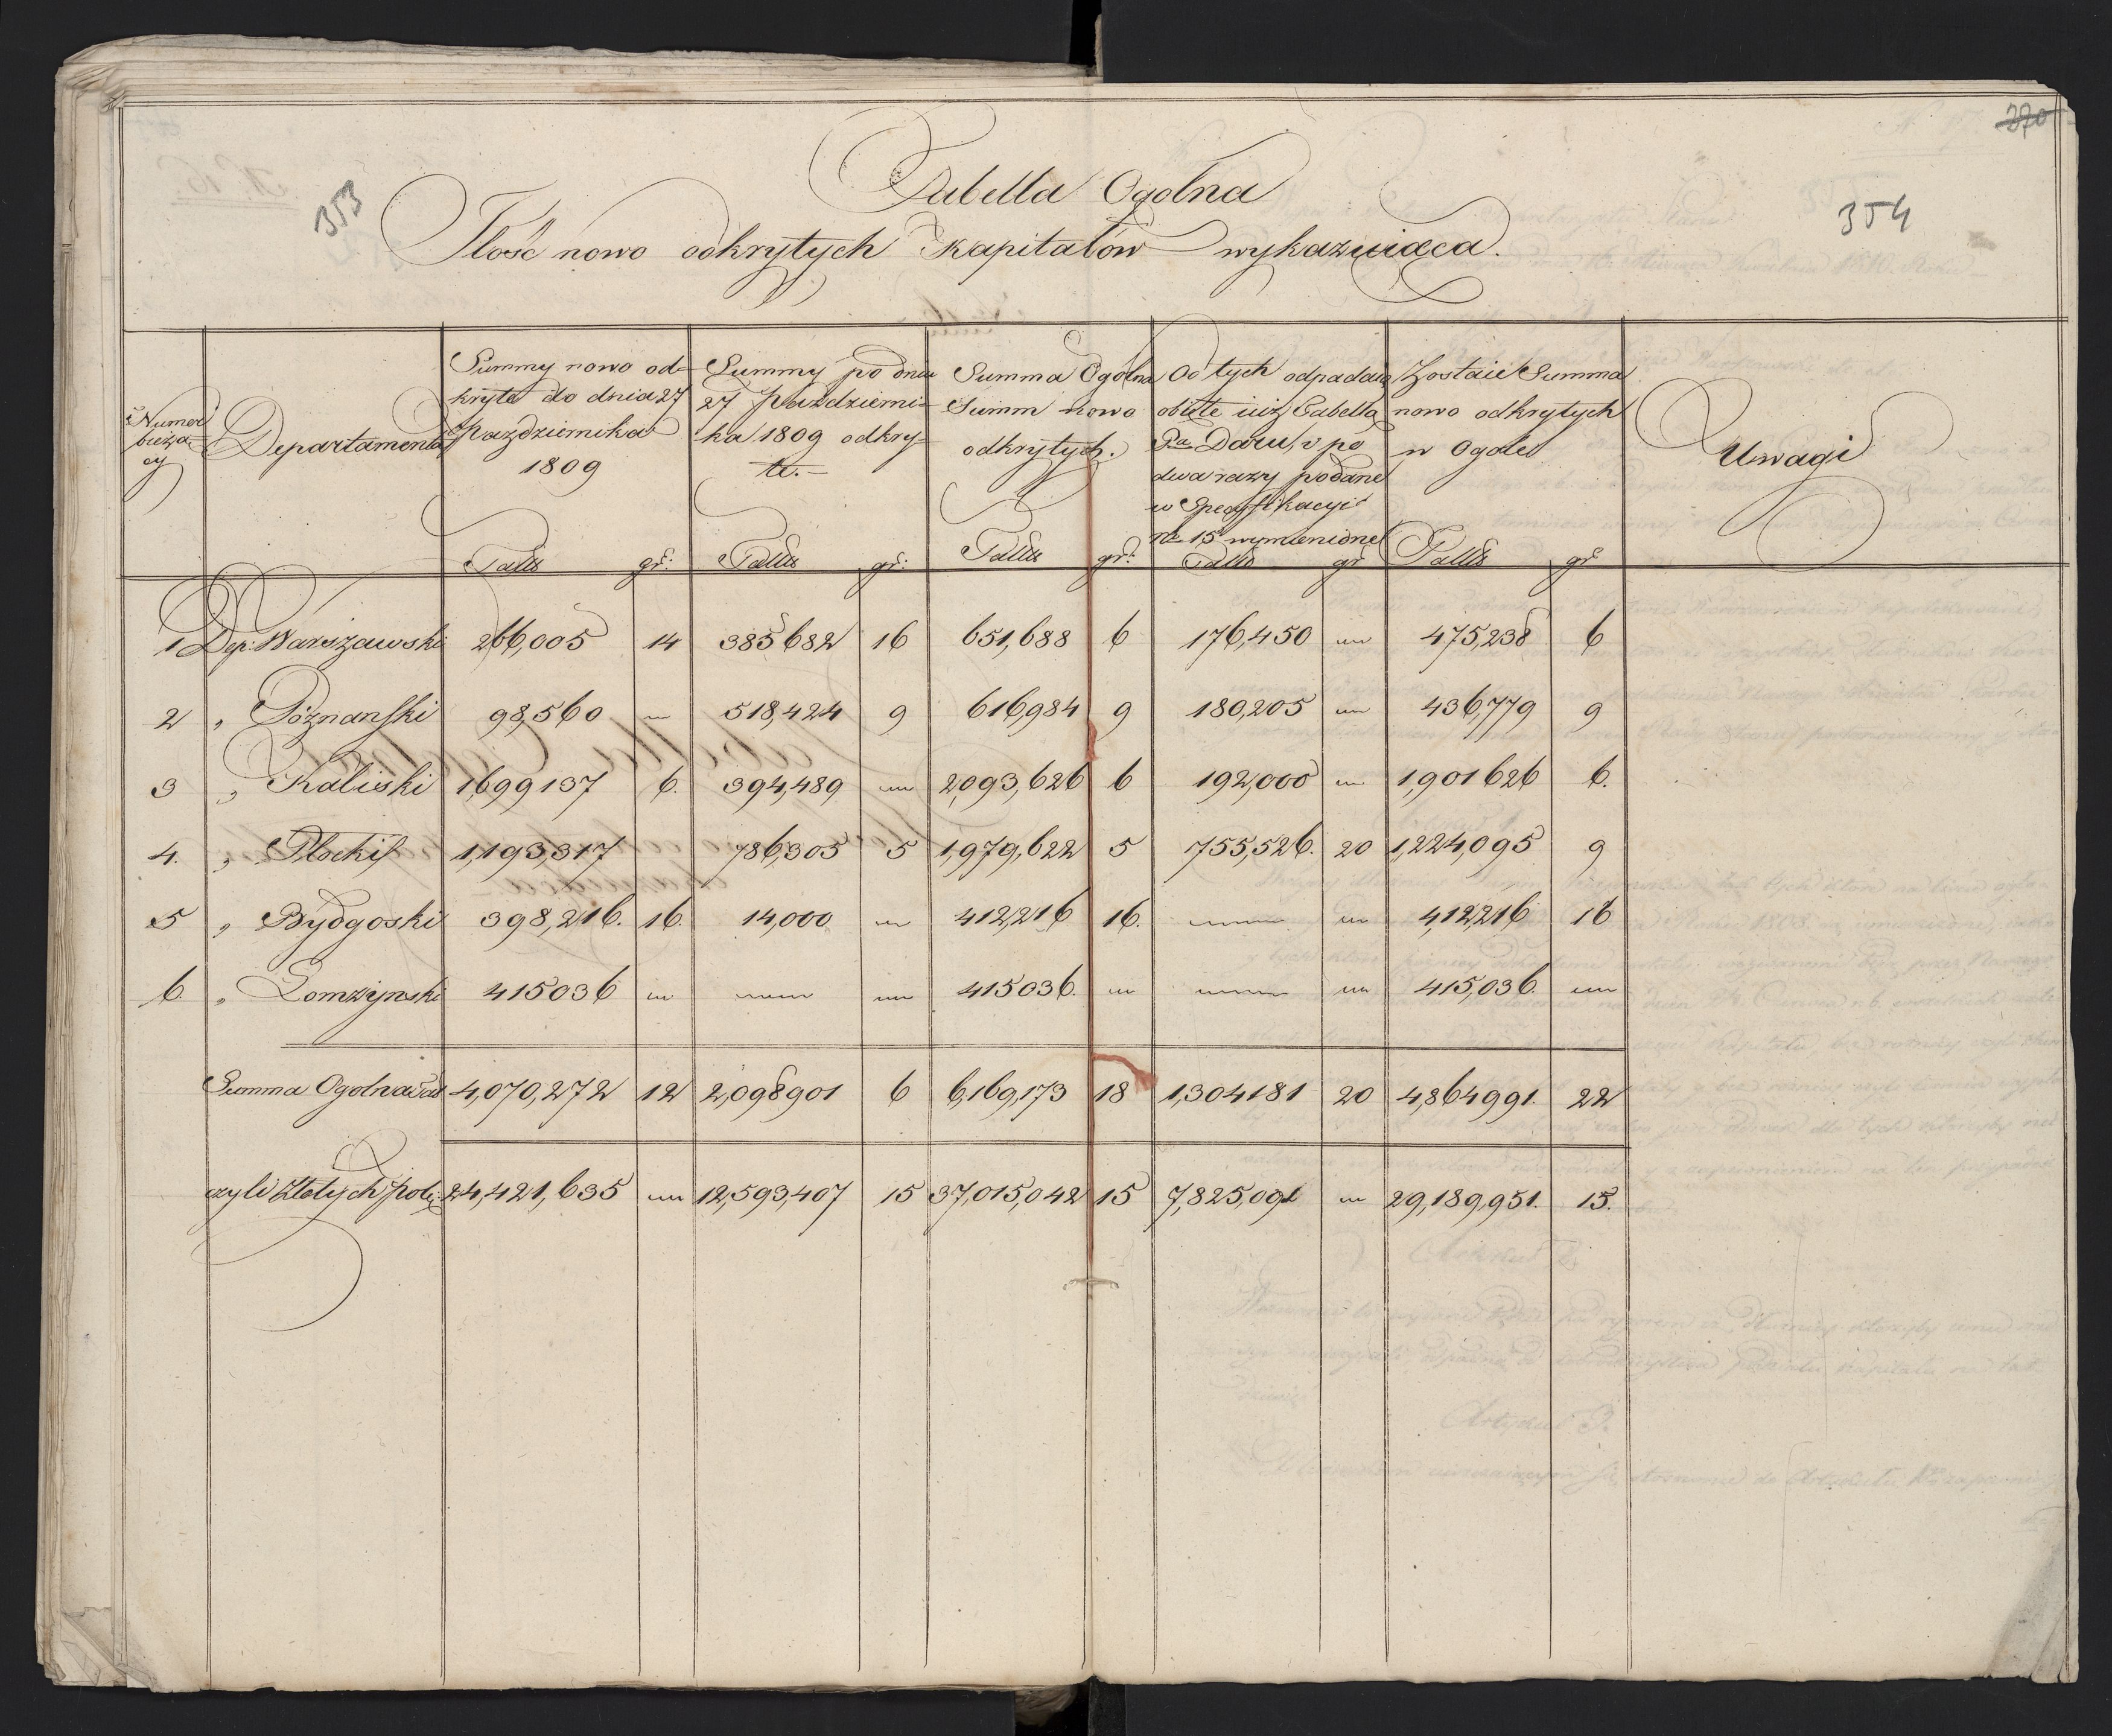 270
353
354
Tabella Ogolna
Jlość nowo odkrytych Kapitałów wykazuiąca.
Numer bieżący | Departamenta | Summy nowo odkryte do dnia 27 Października 1809 | Summy po dniu 27 Października 1809 odkryte.— | Summa Ogolna Summ nowo odkrytych. | Od tych odpadaią obięte iuż Tabellą Pa Daru, i po dwa razy podane w Specyfikacyi Nro 15 wymienione | Zostaie Summa nowo odkrytych w Ogole | Uwagi
Talla gr: | Talla gr: | Talla gr: | Talla gr | Talla gr
1 Dep: Warszawski 266,005 14 385682 16 651,688 6 176,450 — 475,238 6
2 „ Poznanski 98,560 — 518,424 9 616,984 9 180,205 — 436,779 9
3 „ Kaliski 1,699137 6. 394,489 — 2,093,626 6 192,000 — 1,901626 6.
4. „ Płocki 1,193,317 786,305 5 1,979,622 5 755,526. 20 1,224,095 9
5 „ Bydgoski 398,216. 16. 14,000 — 412,216 16. — — 412,216 16
6. „ Łomżynski 415036 — — — 415036. — — — 415,036. —
Summa Ogolna 4,070,272 12 2,098901 6 6,169,173 18 1,304181 20 4,864991. 22
czyli Złotych pol: 24,421,635 — 12,593,407 15 37,015,042 15 7,825,091 — 29,189,951. 15.